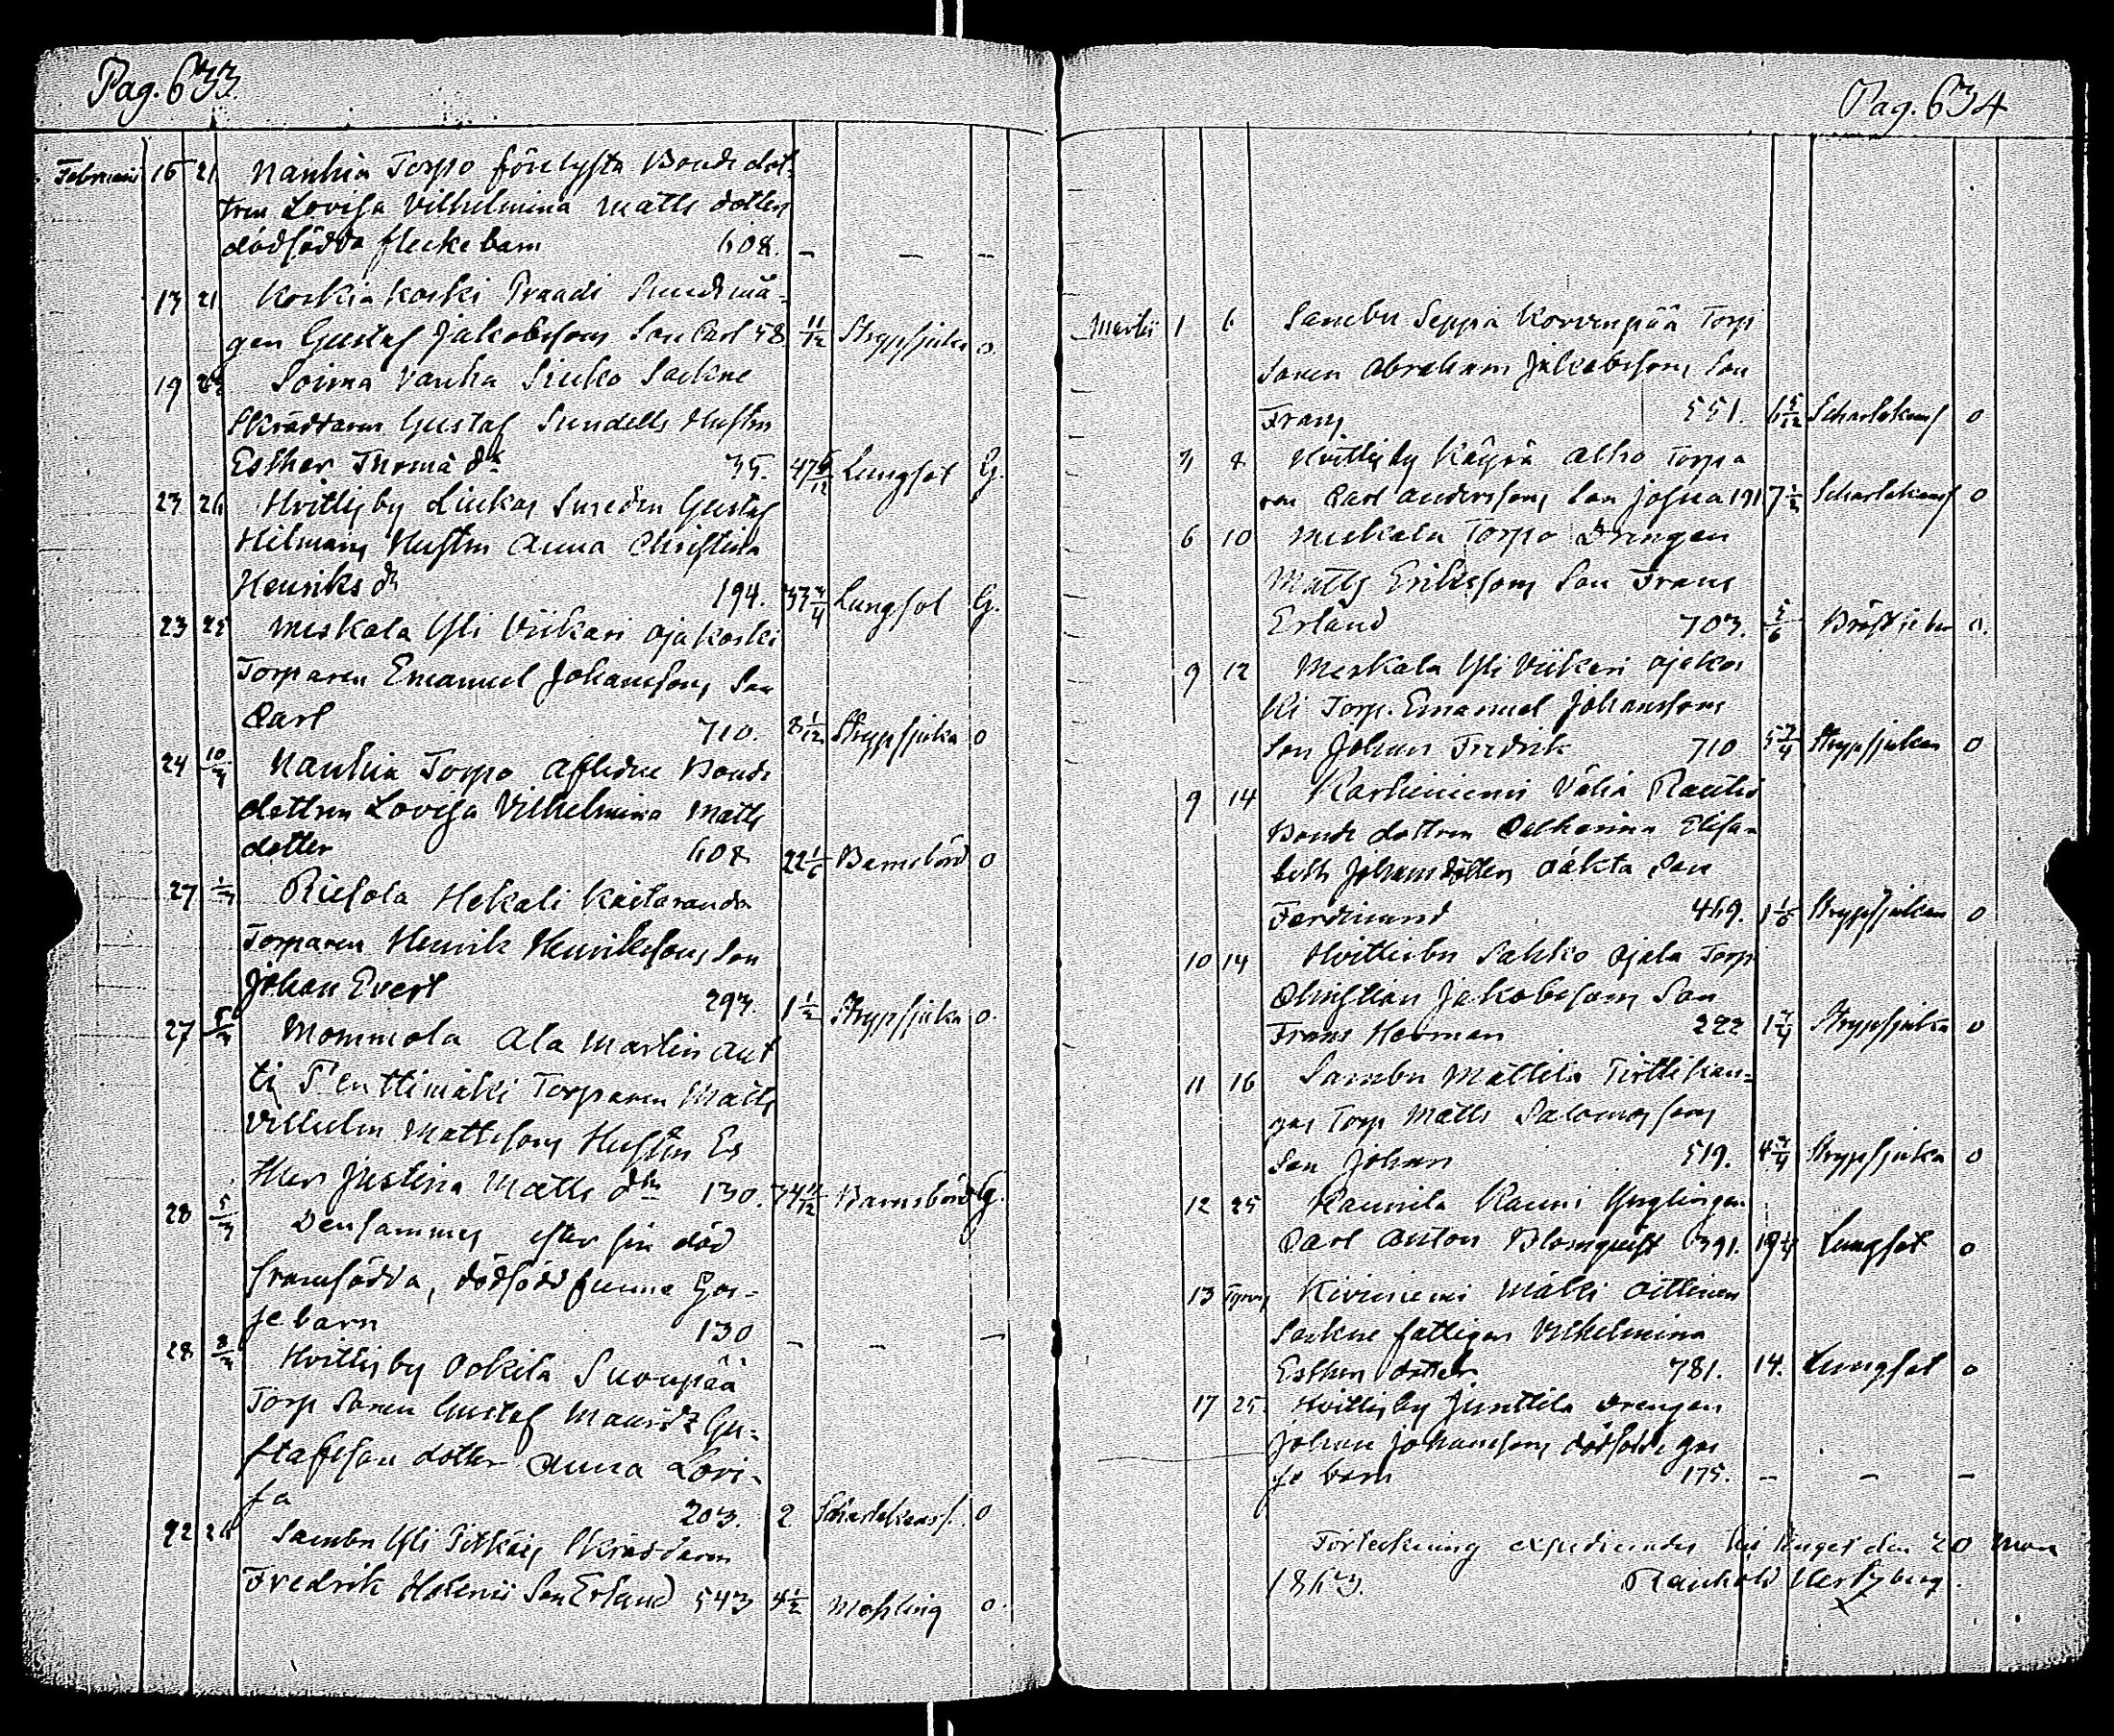 Pag. 633.
Februarii 15 21 Nanhia Torpo förelyfta Bonde dot-
tren Lovisa Vilhelmina Matts dotters
dödfödda flickebarn 608. – – –
13 21 Koskis Koski Praadi Sundmä-
gen Gustaf Jakobssons Son Carl 58 11/12 Strypsjuka o.
19 Loima Vanha Siuko Sockne
Skräddaren Gustaf Sundells Hustru
Esther Thoma dr 35. 47 Lungsot G.
23 26 Hvittisby Liukas Smeden Gustaf
Hilmans Hustru Anna Christina
Henriks dr 194. 33 3/4 Lungsot G.
23 25 Meskala Yli Viikari Ojakoski
Torparen Emanuel Johanssons Son
Carl 710. 2 1/12 Strypsjuka o
24 10/3 Nanhia Torpo aflidne Bonde
dottren Lovisa Vilhelmina Matts
dotter 608 22 1/6 Barnsbörd o
27 1/3 Riesola Hekali Kaitaranda
Torparen Henrik Henrikssons Son
Johan Evert 293. 1 1/2 Strypsjuka o.
27 5/3 Mommola Ala Martin Ant
ti Penttimäki Torparen Matts
Vilhelm Mattssons Hustru Es
ther Justina Matts dtr 130. 34 11/12 Barnsbörd G.
28 5/3 Densammes efter sin död
framfödda, dödfödd funne Gos-
se barn 130 – – –
28 8/3 Hvittisby Ookila Suonpää
Torp Sonen Gustaf Mauritz Gu-
stafsson dotter Anna Lovi-
sa 203. 2 Scharlakansf. o
22 Sambu Yli Pitkäis Skräddaren
Fredrik Helenii Son Erland 543 4 1/2 Messling o.
Pag. 634
Martii 1 6 Sambu Seppä Korvenpää Torp
Sonen Abraham Jakobssons Son
Frans 551. 6 5/12 Scharlakansf o
3 8 Hvittisby Käyrä Alho Torpa
ren Carl Anderssons Son Josua 191 7 1/2 Scharlakansf o
6 10 Meskala Torpo Drengen
Matts Erikssons Son Frans
Erland 703. 5/6 Bröstsjuka o.
9 12 Meskala Yli Viikari Ojakos
ki Torp. Emanuel Johanssons
Son Johan Fredrik 710 5 3/4 Strypsjukan o
9 14 Karhiniemi Väliä Rautio
Bonde dottren Catharina Elisa-
beth Johans dotters oäkta Son
Ferdinand 469. Strypsjukan o
10 14 Hvittisby Sahko Ojala Torp
Christian Jakobssons Son
Frans Herman 222 1 3/4 Strypsjuka o
11 16 Sambu Mattila Tirttikan-
gas Torp Matts Salomonssons
Son Johan 519. 4 3/4 Strypsjuka o
12 25 Raunila Rauni Ynglingen
Carl Anton Blomqvist 391. 19 Lungsot o
13 Tyrvis Kiviniemi Mälli Oittinen
Sockne fattigen Vilhelmina
Esthers dotter 781. 14. Lungsot o
17 25. Hvittisby Junttila Drengen
Johan Johanssons dödfödde gos
se barn 175. – – –
Förteckning expedierades den 20 Mars
1863. Reinhold Hertzberg.